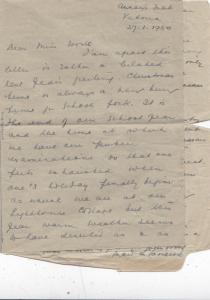 Victoria
27.1.1950
Dear Miss
I'm afraid this
letter is rather a belated
New Year's greeting. Christmas
time is always a very busy
time for School folk. It is
the end of our School Year
and the time at which
we have our
examinations so that one
feels exhausted when
one's holiday finally begins
as usual we are at our
cottage but this
year warm weather seems
to have deserted us